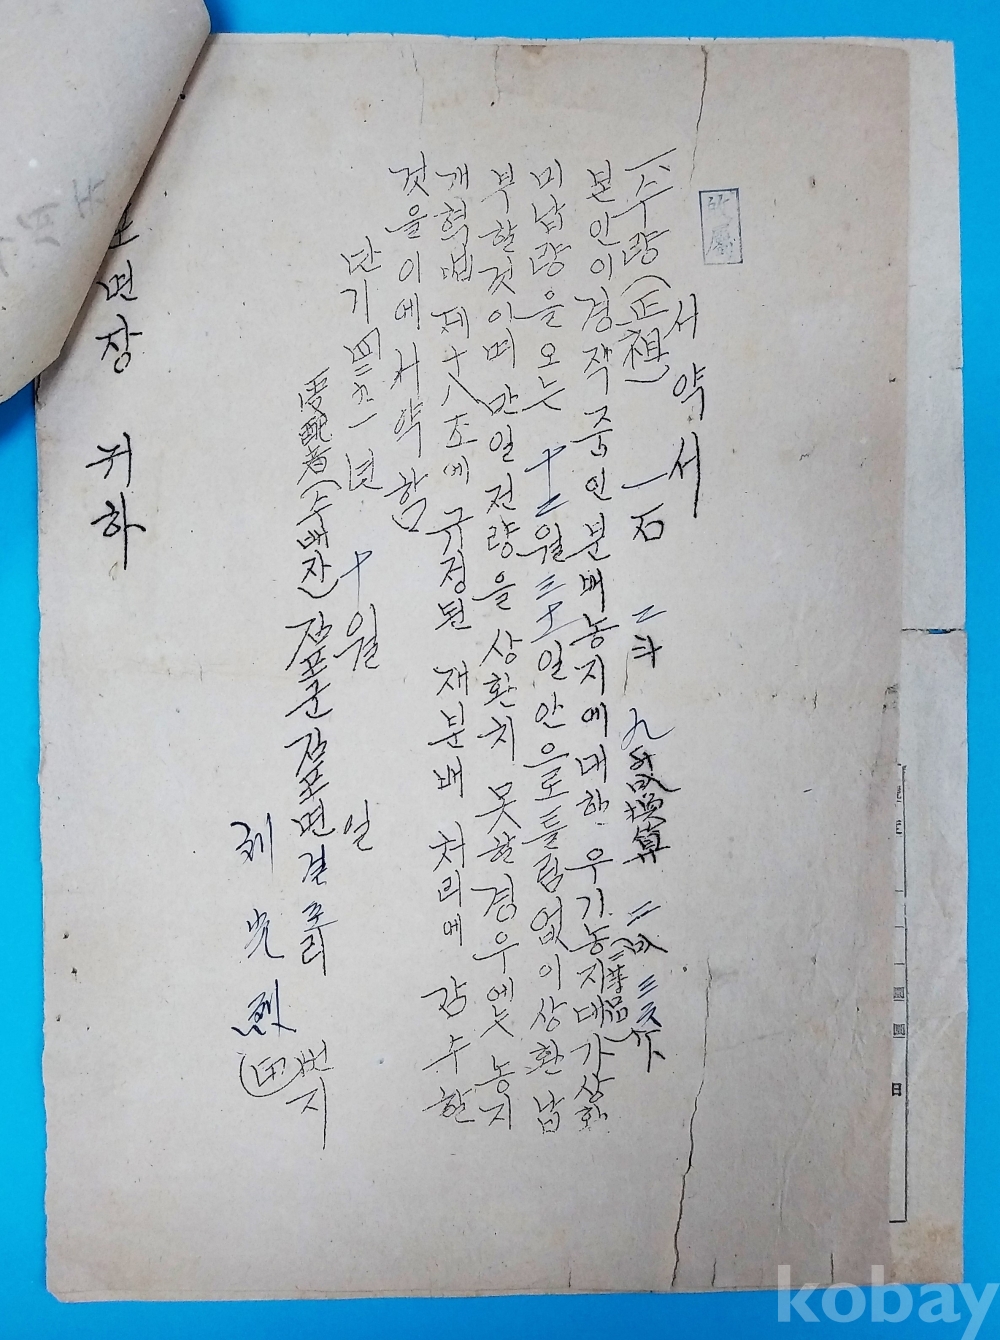 서약서
一、수량(正祖) 一石 二斗 九升 叺換算 二叺 三三斤
(二等品)
본인이 경작중인 분배농지에 대한 우기농지대가상환
미납량을 오는 十二월 三十일 안으로 틀림없이 상환납
부할것이며 만일 전량을 상환치 못할 경우에는 농지
개혁법 제十八조에 규정된 재분배 처리에 감수할
것을 이에 서약함
단기 四二九一년 十월 일
受配者(수배자) 김포군 김포면 걸포리 번지
광烈 (印)
포면장 귀하
kobay